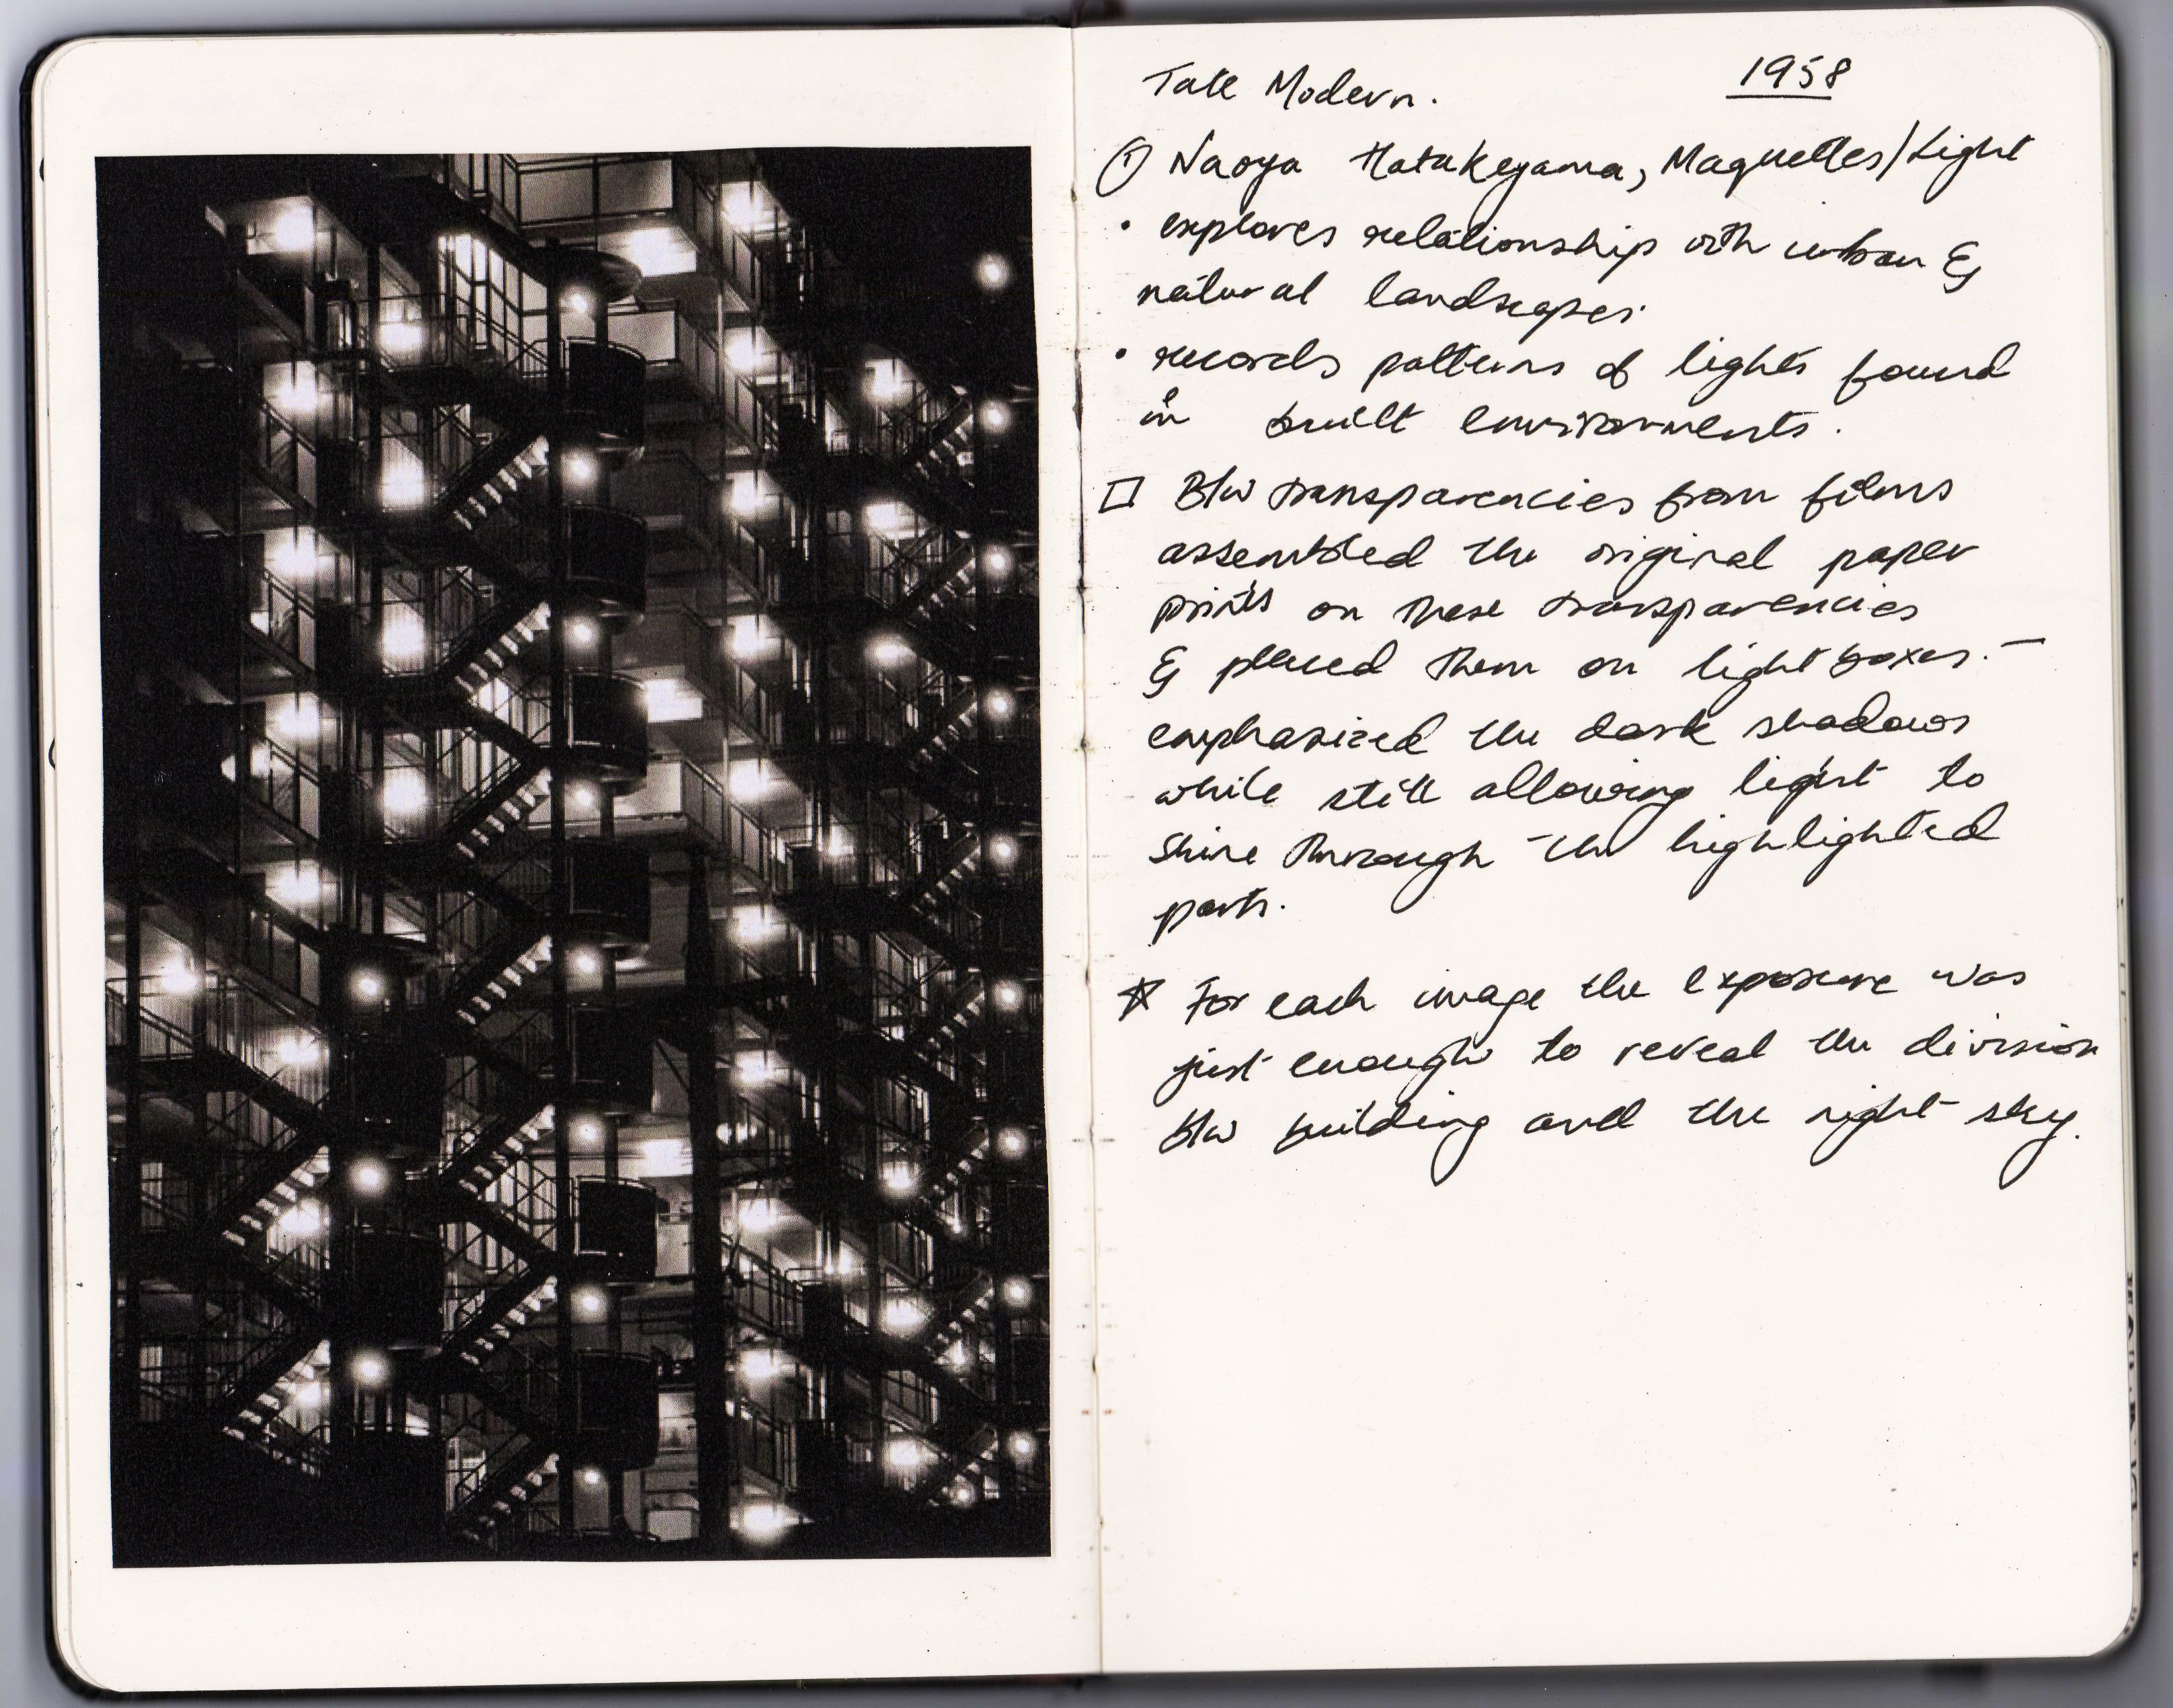 Tate Modern. 1958
① Naoya Hatakeyama, Maquettes/Light
• explores relationship with urban &
natural landscapes.
• records patterns of lights found
in built environments.
□ B/w transparencies from films
assembled the original paper
prints on these transparencies
& placed them on light boxes. —
emphasized the dark shadows
while still allowing light to
shine through the highlighted
parts.
☆ For each image the exposure was
just enough to reveal the division
b/w building and the night sky.